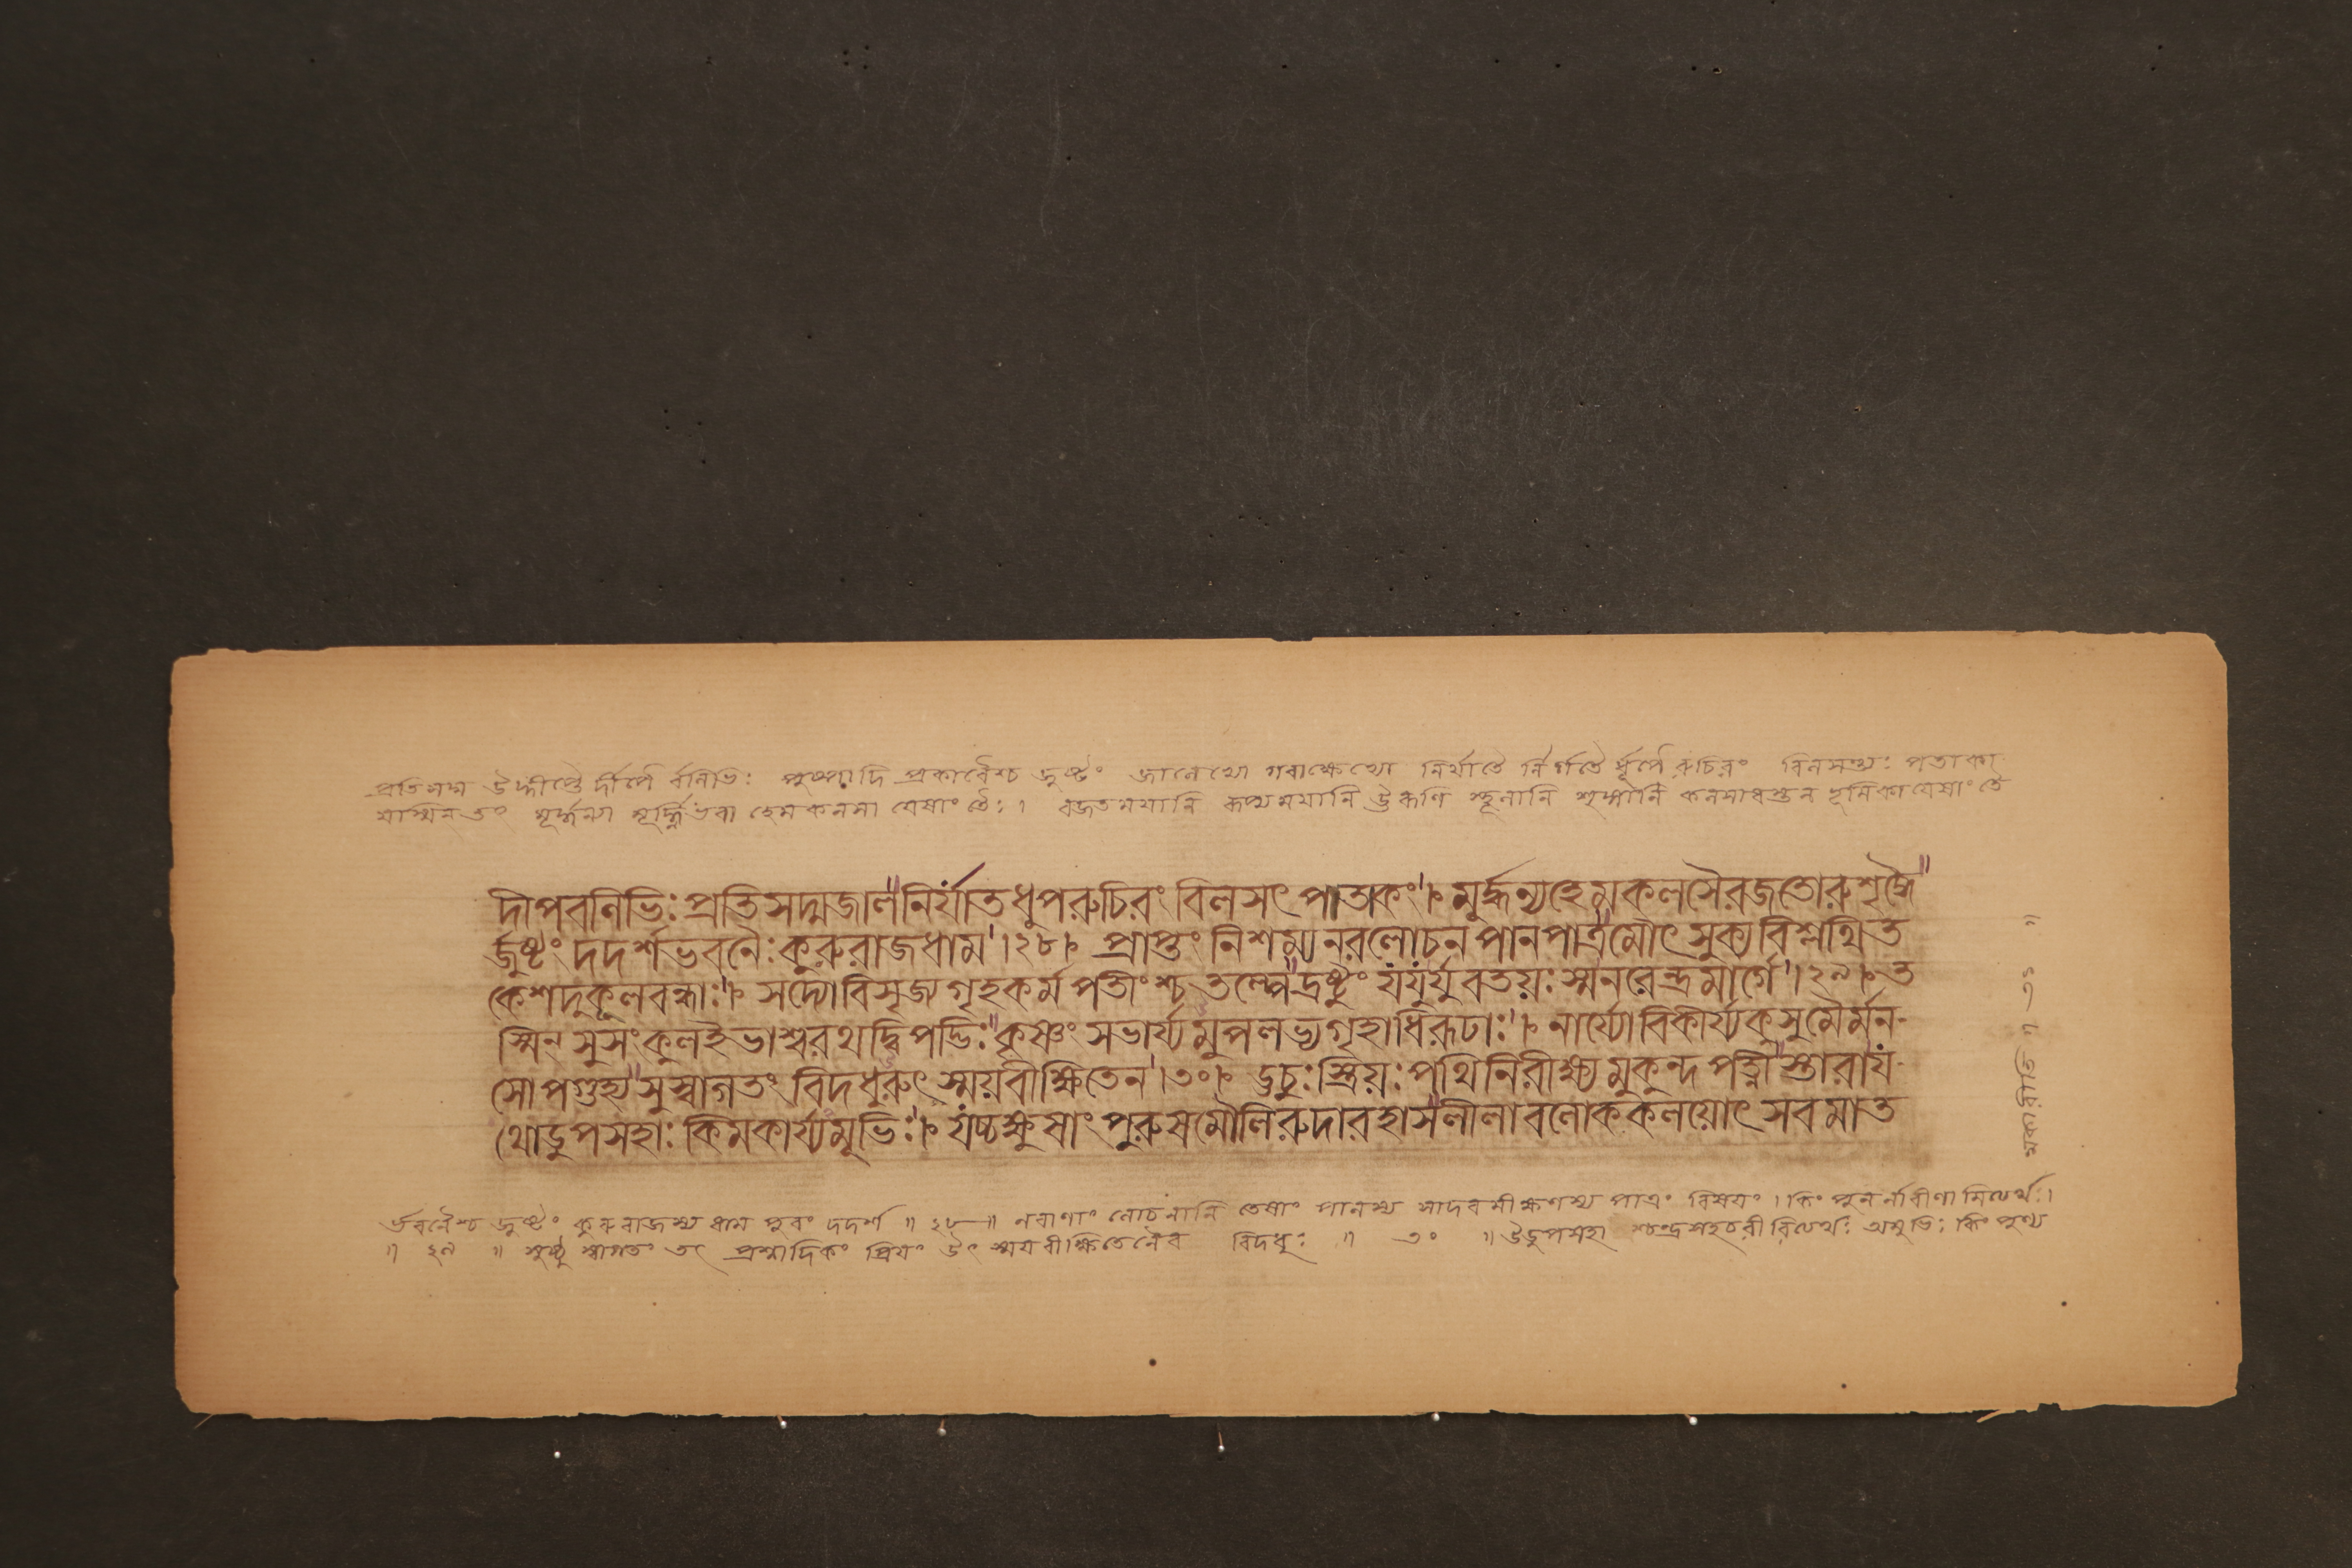 প্রতিসদ্ম উদ্দীপ্তৈ র্দীপৈ র্বলিভিঃ পুষ্পাদি প্রকারৈশ্চ জুষ্টং জালেভ্যো গবাক্ষেভ্যো নির্যাতৈ র্নির্গতৈ র্ধূপৈ রুচিরং বিলসন্ত্যঃ পতাকা
যস্মিন্ তং মূর্দ্ধন্যা মূর্দ্ধ্নিভবা হেমকলসা যেষাং তৈঃ। রজতময়ানি রূপ্যময়ানি উরূণি স্থূলানি শৃঙ্গাণি কলসাধস্তন ভূমিকা যেষাং তৈ
দীপবলিভিঃ প্রতিসদ্মজাল নির্যাত ধুপরুচিরং বিলসৎ পাতাকং। মুর্দ্ধন্যহেমকলসৈরজতোরুশৃঙ্গৈ
র্জুষ্টং দদর্শভবনৈঃ কুরুরাজধাম।২৮। প্রাপ্তং নিশম্যনরলোচন পানপাত্রমৌৎসুক্যবিশ্লথিত
কেশদুকূলবন্ধাঃ। সদ্যোবিসৃজ্য গৃহকর্ম পতীংশ্চতল্পে দ্রষ্টুং যযুর্যুবতয়ঃ স্মনরেন্দ্রমার্গে।২৯। ত
স্মিন্ সুসংকুলইভাশ্বরথদ্বিপদ্ভিঃ কৃষ্ণং সভার্য্যমুপলভ্যগৃহাধিরূঢাঃ। নার্য্যোবিকীর্য্যকুসুমৈর্মন-
সোপগুহ্য সুস্বাগতং বিদধুরুৎস্ময়বীক্ষিতেন।৩০। ঊচুঃস্ত্রিয়ঃ পথিনিরীক্ষ্য মুকুন্দ পত্নী স্তারায
থোডুপসহাঃ কিমকার্য্যমূভিঃ। যচ্চক্ষুষাং পুরুষমৌলিরুদারহাসলীলাবলোককলয়োৎসবমাত
র্ভবনৈশ্চ জুষ্টং কুরুরাজস্য ধাম পুরং দদর্শ ॥ ২৮ ॥ নরাণাং লোচনানি তেষাং পানস্য সাদরবীক্ষণস্য পাত্রং বিষয়ং। কিং পুনর্নারীণামিত্যর্থঃ।
॥ ২৯ ॥ সুষ্ঠু স্বাগতং তৎ প্রশ্নাদিকং প্রিয়ং উৎস্ময়বীক্ষিতেনৈব বিদধুঃ ॥ ৩০ ॥ উডুপসহা শ্চন্দ্রসহচরীরিত্যর্থঃ অমূভিঃ কিং পুণ্য
মকারীতি ॥ ৩১ ॥